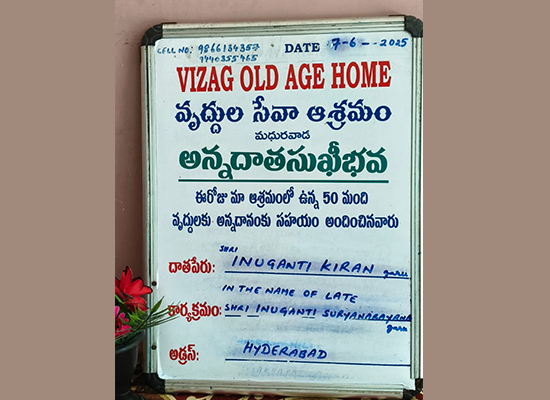 CELL NO: 9866134357 DATE 7-6-2025
7740355465
VIZAG OLD AGE HOME
వృద్ధుల సేవా ఆశ్రమం
మధురవాడ
అన్నదాతసుఖీభవ
ఈరోజు మా ఆశ్రమంలో ఉన్న 50 మంది
వృద్ధులకు అన్నదానంకు సహాయం అందించినవారు
SHRI
దాతపేరు: INUGANTI KIRAN garu
IN THE NAME OF LATE
కార్యక్రమం: SHRI INUGANTI SURYANARAYANA
garu
అడ్రస్: HYDERABAD